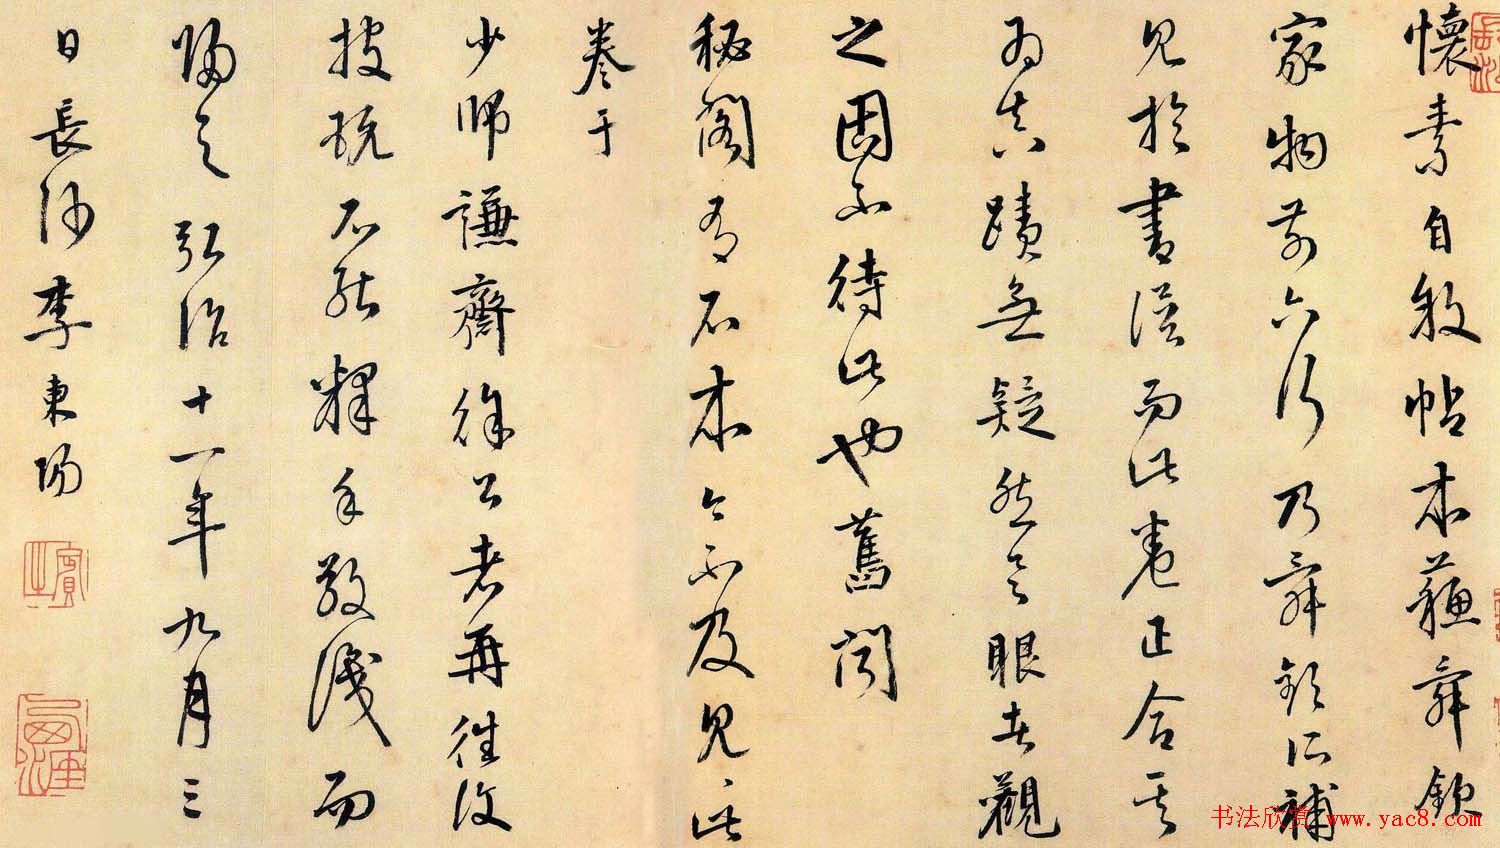 懷素自敘帖本蘇舜欽
家物前六行乃舜欽所補
見於書譜而此卷正合其
為真蹟無疑然具眼者觀
之固不待此也舊聞
秘閣有石本今不及見此
卷于
少師謙齋徐公老再往復
披玩不能釋手敬識而
歸之弘治十一年九月三
日長沙李東陽
书法欣赏www.yac8.com